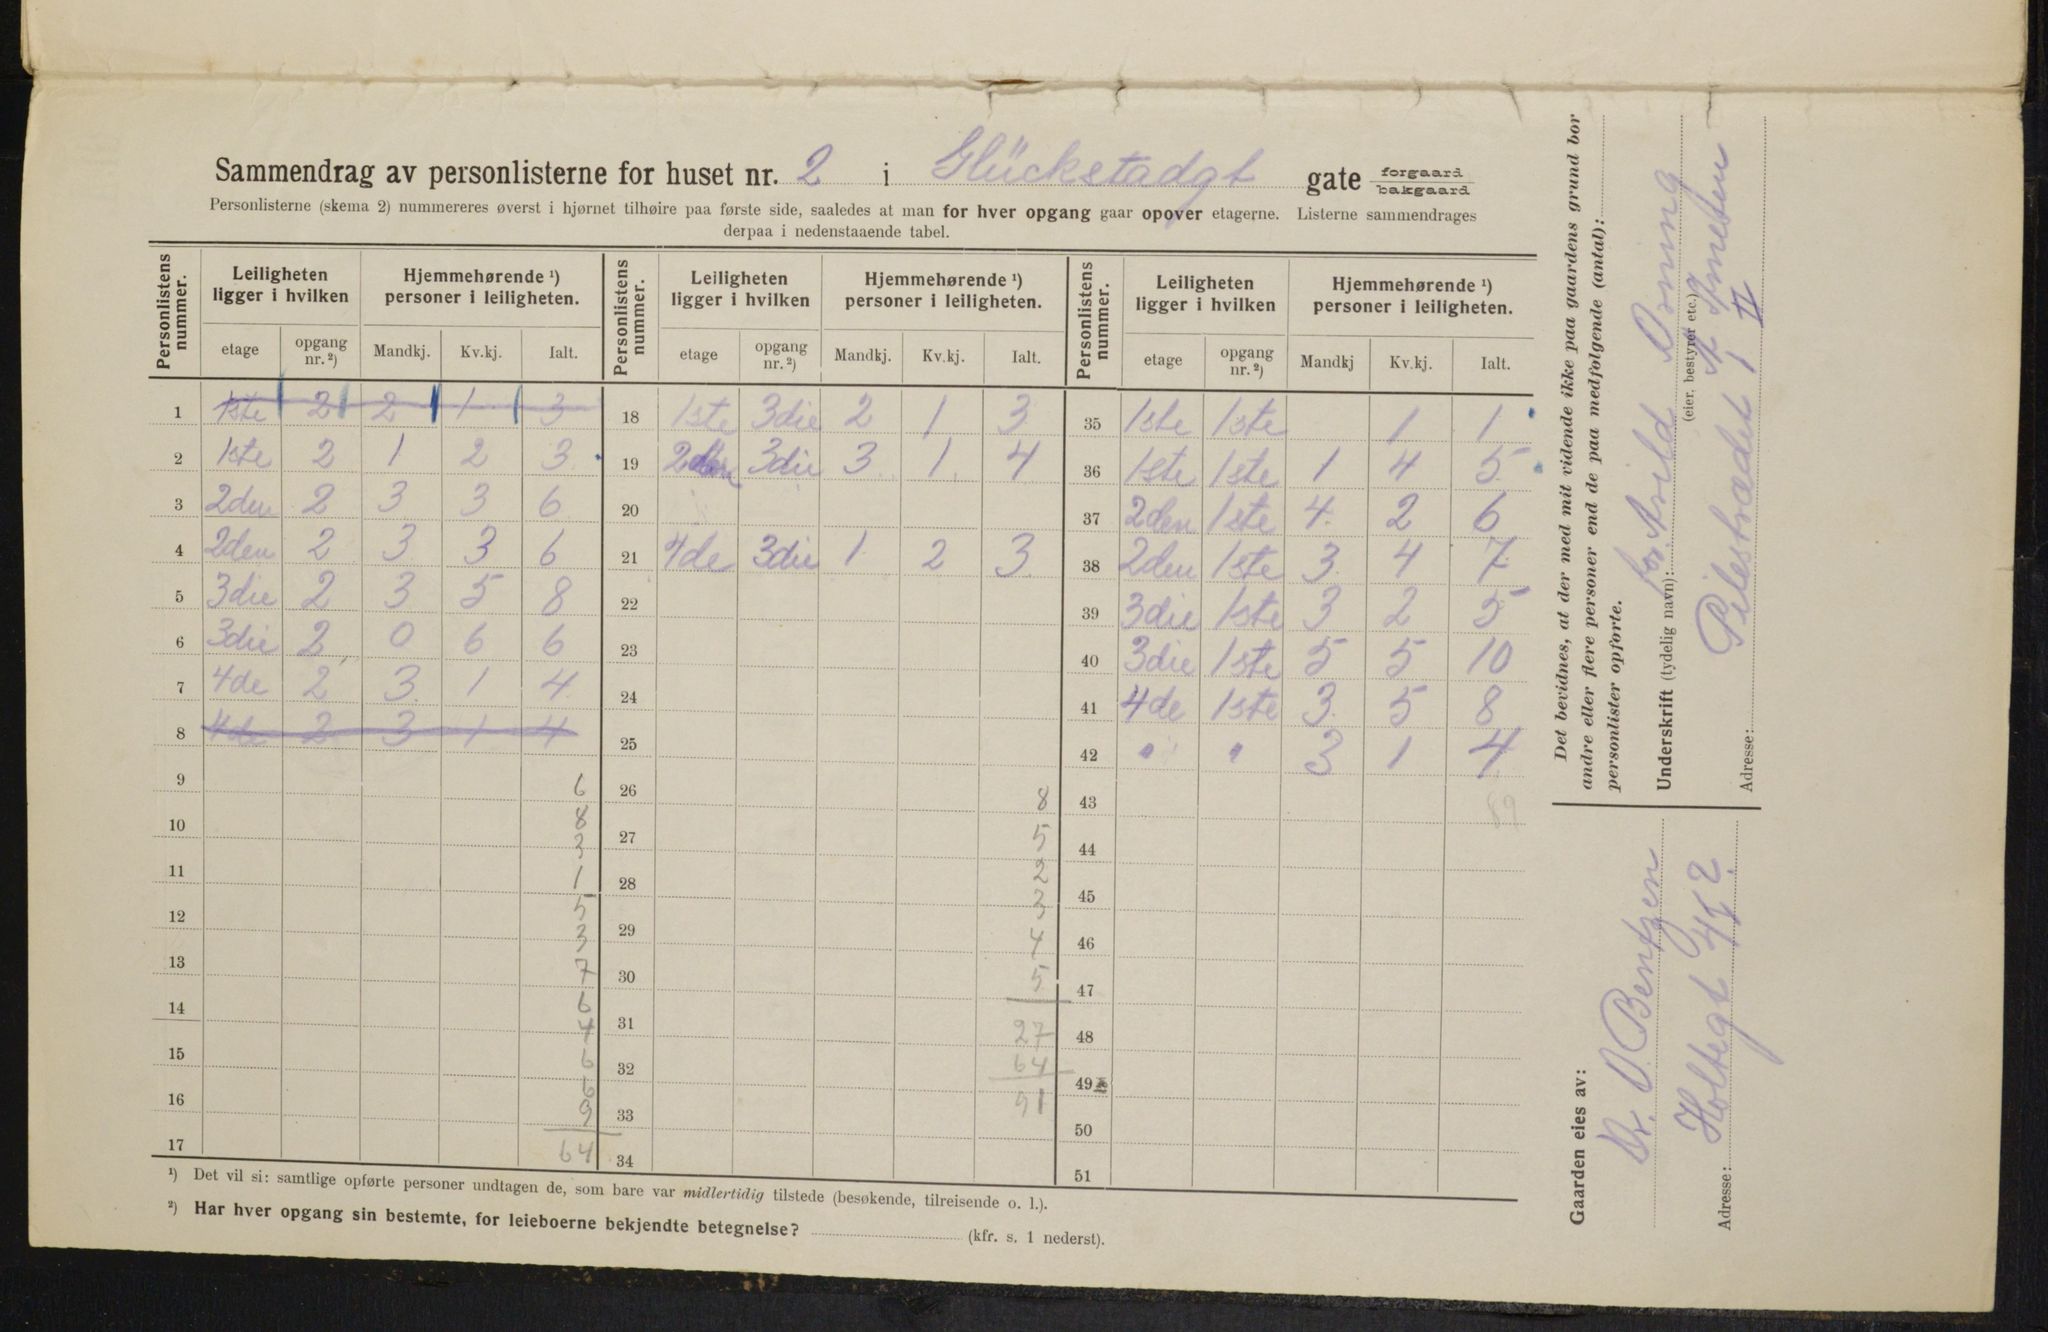 Sammendrag av personlisterne for huset nr. 2 i Glückstadgt gate forgaard bakgaard
Personlisterne (skema 2) nummereres øverst i hjørnet tilhøire paa første side, saaledes at man for hver opgang gaar opover etagerne. Listerne sammendrages
derpaa i nedenstaaende tabel.
Personlistens nummer.
Leiligheten ligger i hvilken
Hjemmehørende ¹) personer i leiligheten.
Personlistens nummer.
Leiligheten ligger i hvilken
Hjemmehørende ¹) personer i leiligheten.
Personlistens nummer.
Leiligheten ligger i hvilken
Hjemmehørende ¹) personer i leiligheten.
etage opgang nr. ²) Mandkj. Kv.kj. Ialt.
etage opgang nr. ²) Mandkj. Kv.kj. Ialt.
etage opgang nr. ²) Mandkj Kv.kj. Ialt.
1 1ste 2 2 1 3
2 1ste 2 1 2 3
3 2den 2 3 3 6
4 2den 2 3 3 6
5 3die 2 3 5 8
6 3die 2 0 6 6
7 4de 2 3 1 4
8 4de 2 3 1 4
9
6
10
8
3
11
1
12
5
3
13
7
14
6
4
15
6
16
6
9
17
64
18 1ste 3die 2 1 3
19 2den 3die 3 1 4
20
21 4de 3die 1 2 3
22
23
24
25
26
8
27
5
28
2
2
29
4
30
5
31
27
32
64
33
91
34
35 1ste 1ste 1 1
36 1ste 1ste 1 4 5
37 2den 1ste 4 2 6
38 2den 1ste 3 4 7
39 3die 1ste 3 2 5
40 3die 1ste 5 5 10
41 4de 1ste 3 5 8
42 " " 3 1 4
43
89
44
45
46
47
48
49
50
51
¹) Det vil si: samtlige opførte personer undtagen de, som bare var midlertidig tilstede (besøkende, tilreisende o. l.).
²) Har hver opgang sin bestemte, for leieboerne bekjendte betegnelse? (kfr. s. 1 nederst).
Det bevidnes, at der med mit vidende ikke paa gaardens grund bor
andre eller flere personer end de paa medfølgende (antal):
personlister opførte.
Underskrift (tydelig navn): for Arild
(eier, bestyrer etc.)
Adresse: Pilestrædet 7 II
Gaarden eies av:
Dr. O. Bentzen
Adresse: Holtegt